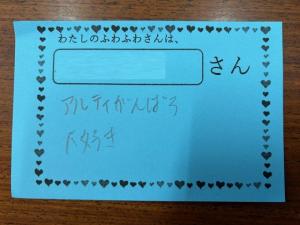 わたしのふわふわさんは、
さん
アルティがんばろ
大好き